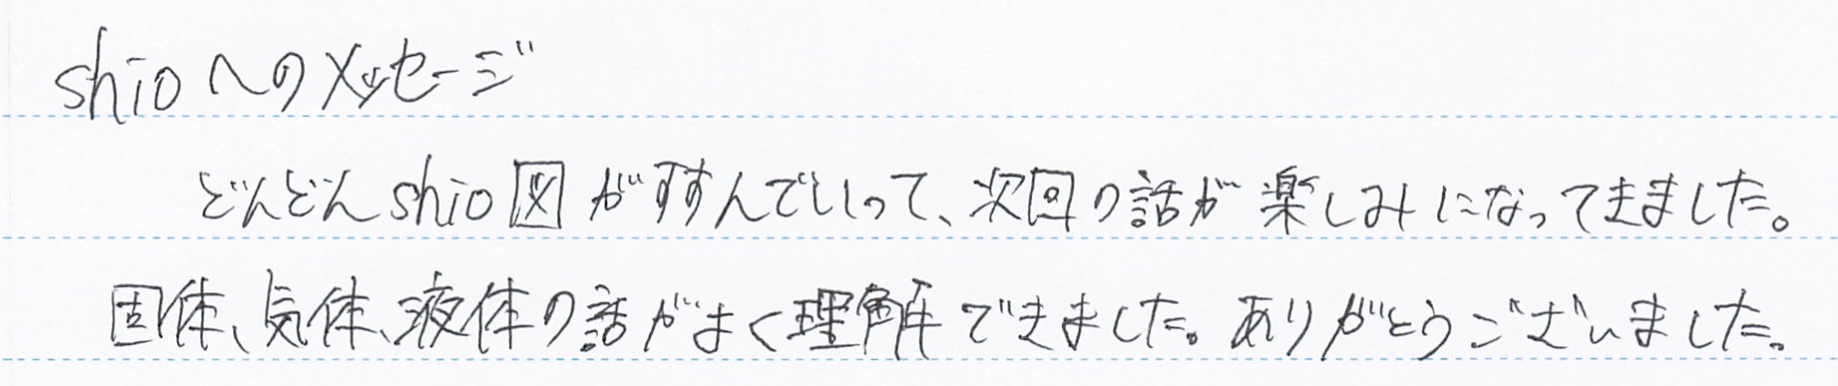 shioへのメッセージ
どんどんshio図がすすんでいって、次回の話が楽しみになってきました。
固体、気体、液体の話がよく理解できました。ありがとうございました。